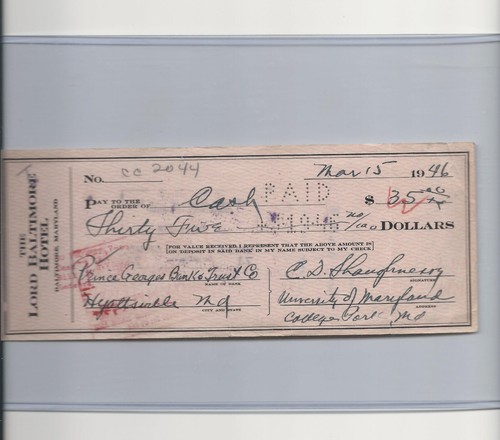 THE
LORD BALTIMORE
HOTEL
BALTIMORE, MARYLAND
No. CC 2044 Mar 15 1946
PAY TO THE
ORDER OF Cash $ 35
PAID
Thirty Five no/100 DOLLARS
1946
FOR VALUE RECEIVED I REPRESENT THAT THE ABOVE AMOUNT IS
ON DEPOSIT IN SAID BANK IN MY NAME SUBJECT TO MY CHECK.
Prince Georges Bank & Trust Co C D Shaughnessy
NAME OF BANK SIGNATURE
Hyattsville Md University of Maryland
CITY AND STATE ADDRESS
College Park, Md